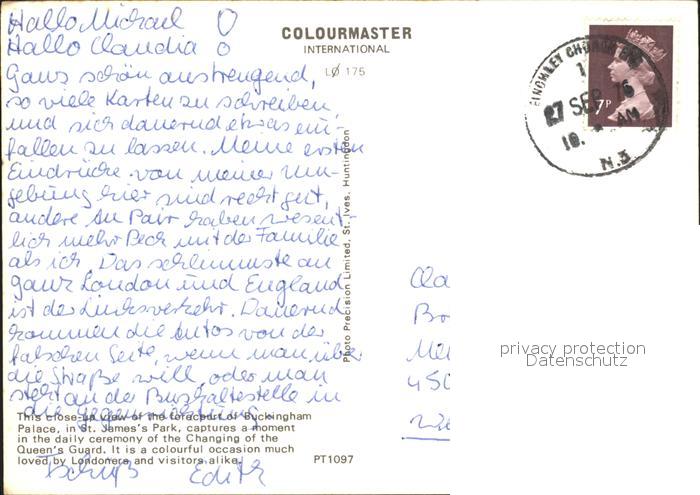 Hallo Michael
Hallo Claudia
Ganz schön anstrengend,
so viele Karten zu schreiben
und sich dauernd etwas ein-
fallen zu lassen. Meine ersten
Eindrücke von meiner Um-
gebung hier sind recht gut,
andere Au Pair haben wesent-
lich mehr Pech mit der Familie
als ich. Das schlimmste an
ganz London und England
ist der Linksverkehr. Dauernd
kommen die Autos von der
falschen Seite, wenn man über
die Straße will, oder man
steht an der Bushaltestelle in
die Gegenrichtung.
Tschüß Edith
COLOURMASTER
INTERNATIONAL
LØ 175
Photo Precision Limited, St. Ives, Huntingdon
FINCHLEY CHURCH END
1
27 SEP 76
10. AM
N.3
7P
Cla
450
privacy protection
Datenschutz
This close-up view of the forecourt of Buckingham
Palace, in St. James's Park, captures a moment
in the daily ceremony of the Changing of the
Queen's Guard. It is a colourful occasion much
loved by Londoners and visitors alike.
PT1097